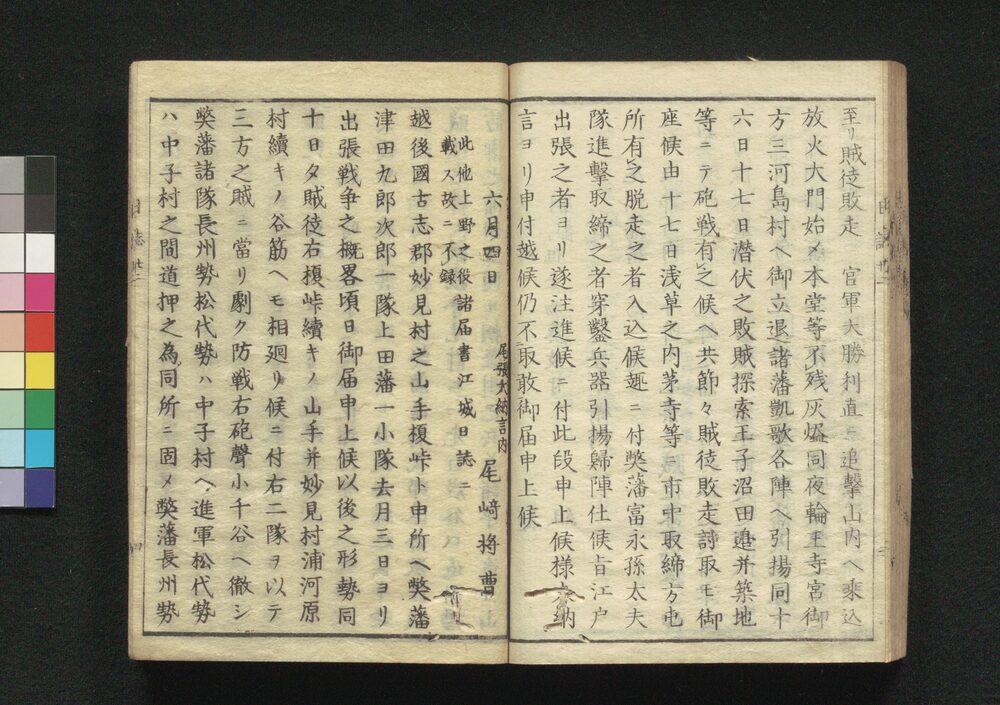 至リ賊徒敗走　官軍大勝利直ニ追撃山内ヘ乘込
放火大門始メ本堂等不残灰燼同夜輪王寺宮御
方三河島村ヘ御立退諸藩凱歌各陣ヘ引揚同十
六日十七日潜伏之敗賊探索王子沼田邉并築地
等ニテ砲戦有之候ヘ共節々賊徒敗走討取モ御
座候由十七日浅草之内茅寺等ニ市中取締方屯
所有之脱走之者入込候趣ニ付弊藩富永孫太夫
隊進撃取締之者穿鑿兵器引揚歸陣仕候旨江戸
出張之者ヨリ遂注進候ニ付此段申上候様大納
言ヨリ申付越候仍不取敢御届申上候
尾張大納言内
六月四日　尾﨑将曹
此他上野之役諸届書江城日誌ニ
載ス故ニ不録
越後國古志郡妙見村之山手榎峠ト申所ヘ弊藩
津田九郎次郎一隊上田藩一小隊去月三日ヨリ
出張戦争之概畧頃日御届申上候以後之形勢同
十日夕賊徒右榎峠續キノ山手并妙見村浦河原
村續キノ谷筋ヘモ相廻リ候ニ付右二隊ヲ以テ
三方之賊ニ當リ劇ク防戦右砲聲小千谷ヘ徹シ
弊藩諸隊長州勢松代勢ハ中子村ヘ進軍松代勢
ハ中子村之間道押之為同所ニ固メ弊藩長州勢
日誌